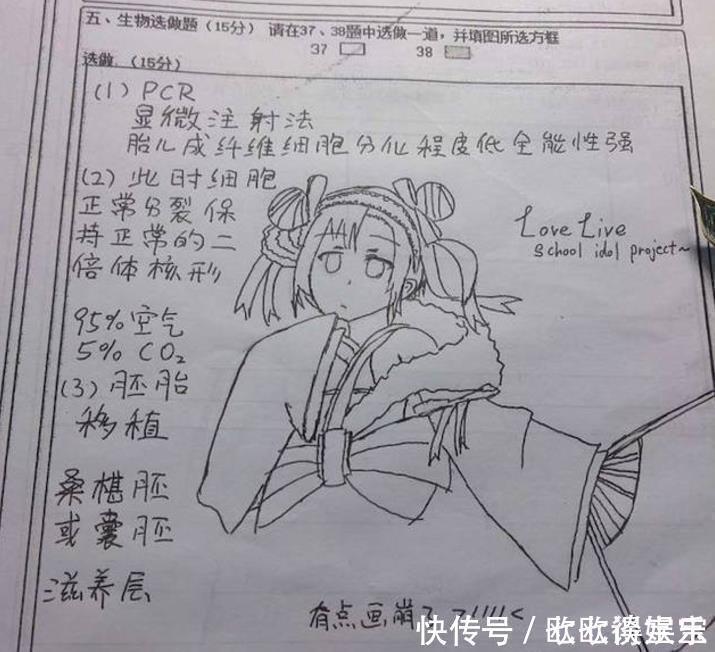 五、生物选做题（15分） 请在37、38题中选做一道，并填图所选方框
37 38
选做．（15分）
(1) PCR
显微注射法
胎儿成纤维细胞分化程度低全能性强
(2) 此时细胞
正常分裂保
持正常的二
倍体核形
95%空气
5% CO₂
(3) 胚胎
移植
桑椹胚
或囊胚
滋养层
Love Live
School idol project~
有点画崩了
快传号／欧欧谈娱乐